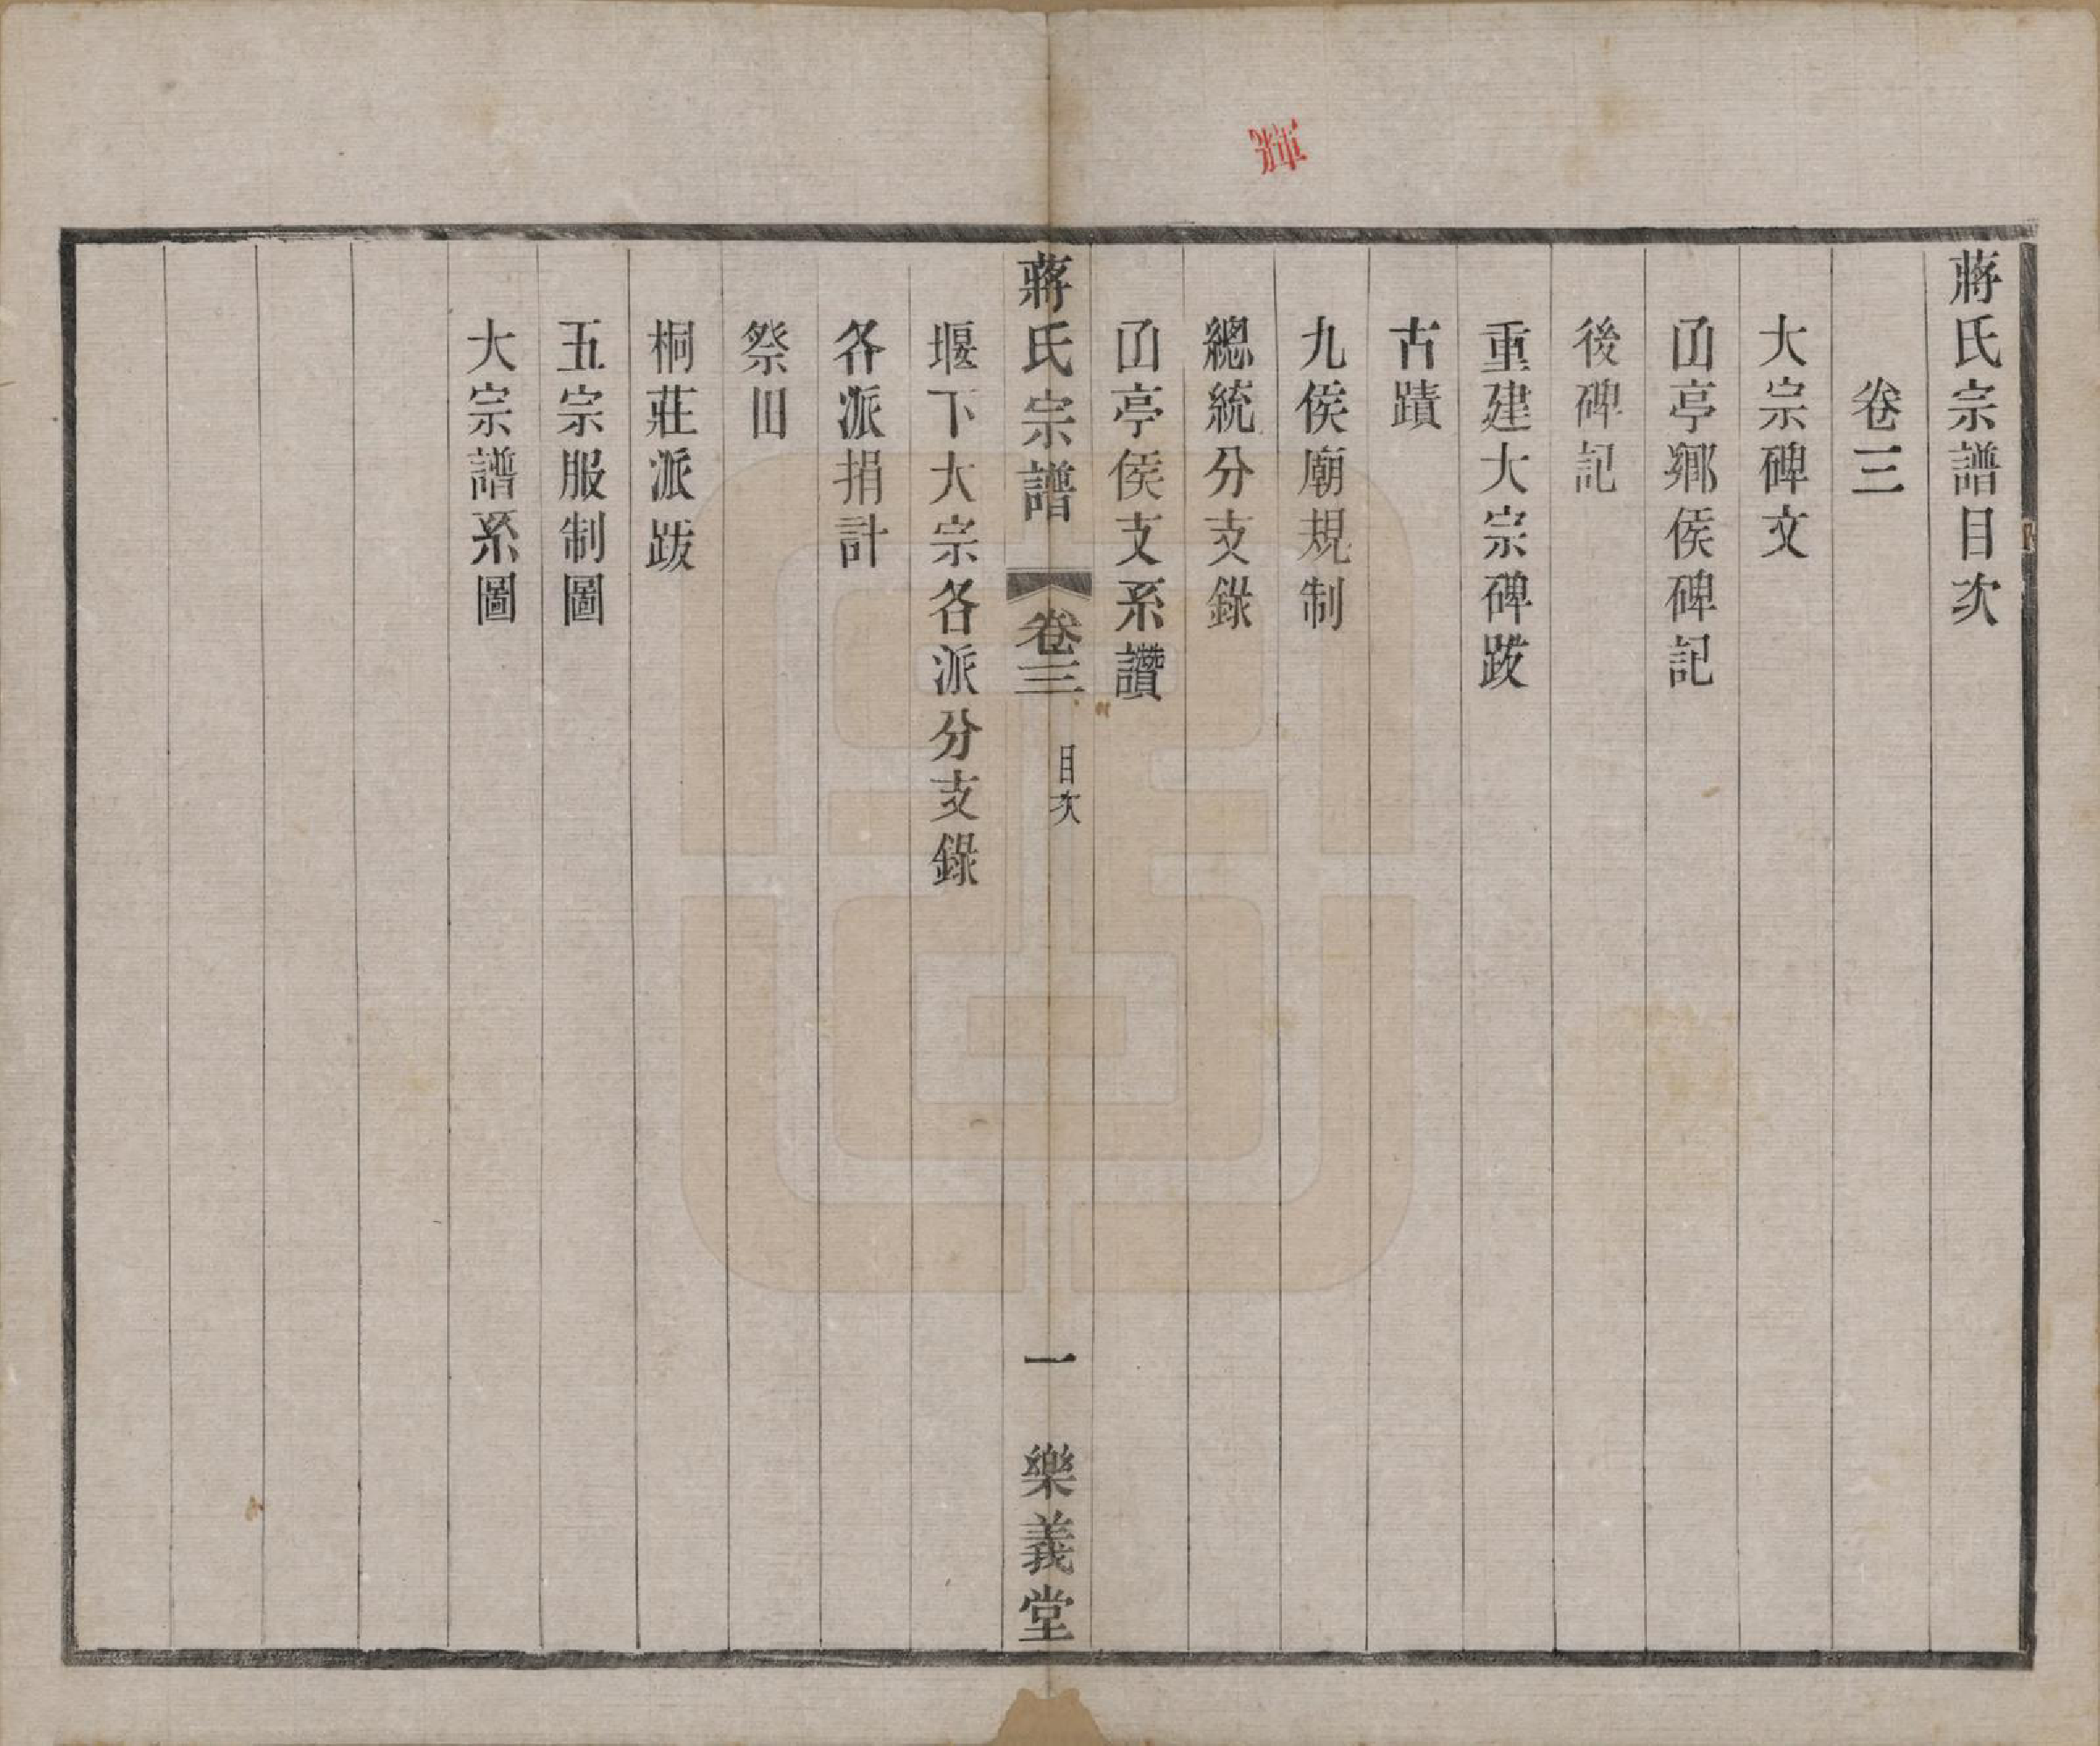 輝
蔣氏宗譜目次
卷三
大宗碑文
函亭鄉侯碑記
後碑記
重建大宗碑跋
古蹟
九侯廟規制
總統分支錄
函亭侯支系讚
蔣氏宗譜 卷三 目次 一 樂義堂
堰下大宗各派分支錄
各派捐計
祭田
桐莊派跋
五宗服制圖
大宗譜系圖